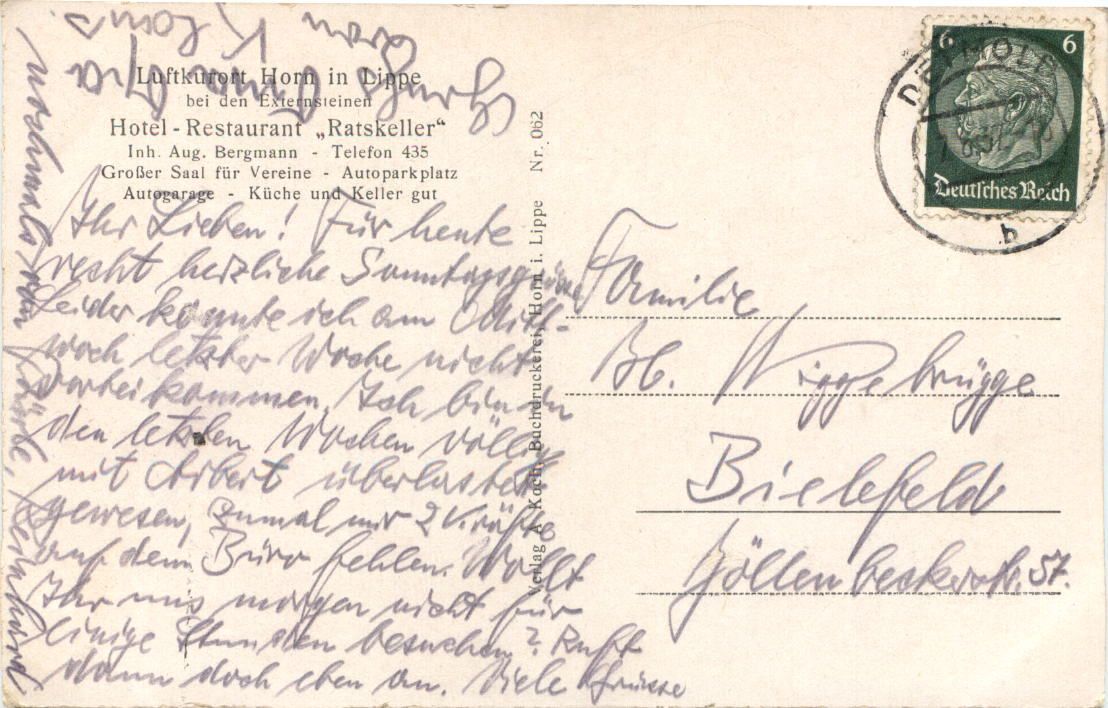 Luftkurort Horn in Lippe
bei den Externsteinen
Hotel-Restaurant „Ratskeller“
Inh. Aug. Bergmann - Telefon 435
Großer Saal für Vereine - Autoparkplatz
Autogarage - Küche und Keller gut
Ihr Lieben! Für heute
recht herzliche Sonntagsgrüsse
Leider konnte ich am Mitt-
woch letzter Woche nicht
vorbeikommen. Ich bin in
den letzten Wochen völlig
mit Arbeit überlastet
gewesen, zumal mir 2 Kräfte
auf dem Büro fehlen. Wollt
Ihr uns morgen nicht für
einige Stunden besuchen? Ruft
dann doch eben an. Viele Grüsse
nochmals
Verlag A. Koch, Buchdruckerei, Horn i. Lippe Nr. 062
6 6
Deutsches Reich
DETMOLD
b
Familie
Wiggebrügge
Bielefeld
57.